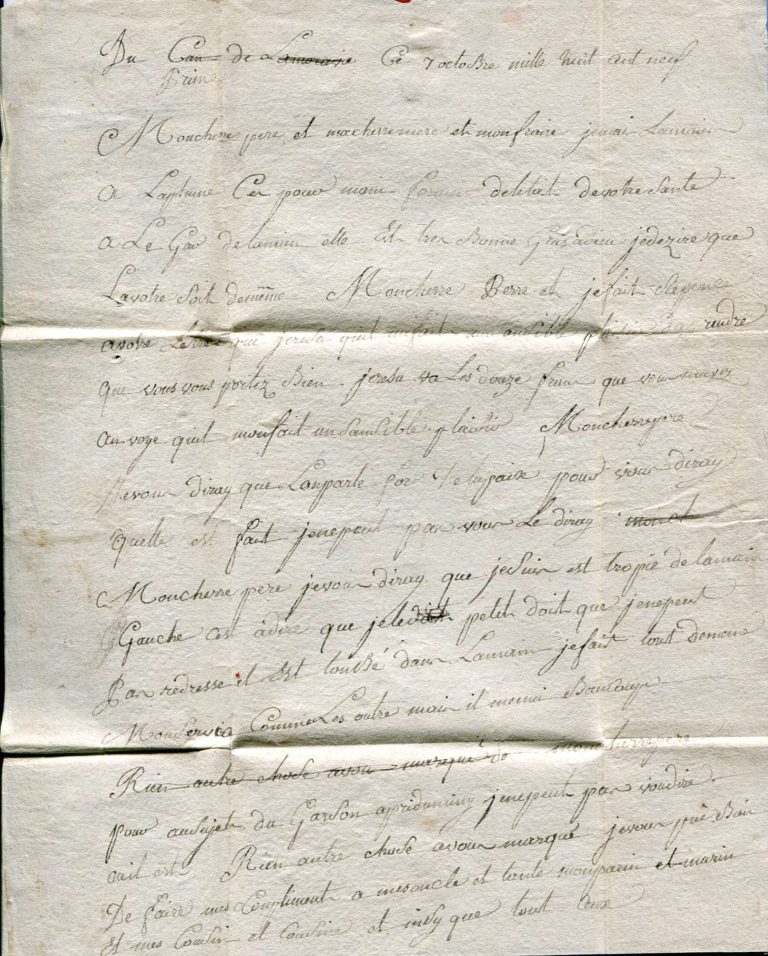 Du Can de Lamoraisie Ce 7 octobre mille huit cent neuf
frime
Moncherre pere et macherremere et monfraire jemai Lamain
a Laplume Cer pour main former deletait devotre Sante
a Le Gar delamien elle Est tres Bonne Gras adieu jedezire que
Lavotre Soit dememe Moncherre Perre et jefait Reponce
avotre Lettre que jeresu quil mefait unsancible plaisir Daprandre
que vous vous portez Bien jeresu va Les douze frans que vous mavez
anvoye quil monfait unsancible plaisir Moncherrepere
Jevous diray que Lonparle for delapaix pour vous diray
quelle est fait jenepeut pas vous Le diray
Moncherre pere jevous diray que jesuis est tropie de lamain
Gauche ces adire que jele petit doit que jenepeut
pas redresse il Est tonbé dans Lamain jefait tout dememe
Monservice Comme Les autre main il menui Baucoup
Rien autre chose avous marque de moncherrepere
pour ausujet du Garson apriduming jenepeut pas voudire
ouil est Rien autre chose avous marque jevous prie Bain
De faire mes Compliment a mesoncle et tante monparin et marin
Et mes Cousin et Cousine et insy que tout Ceux